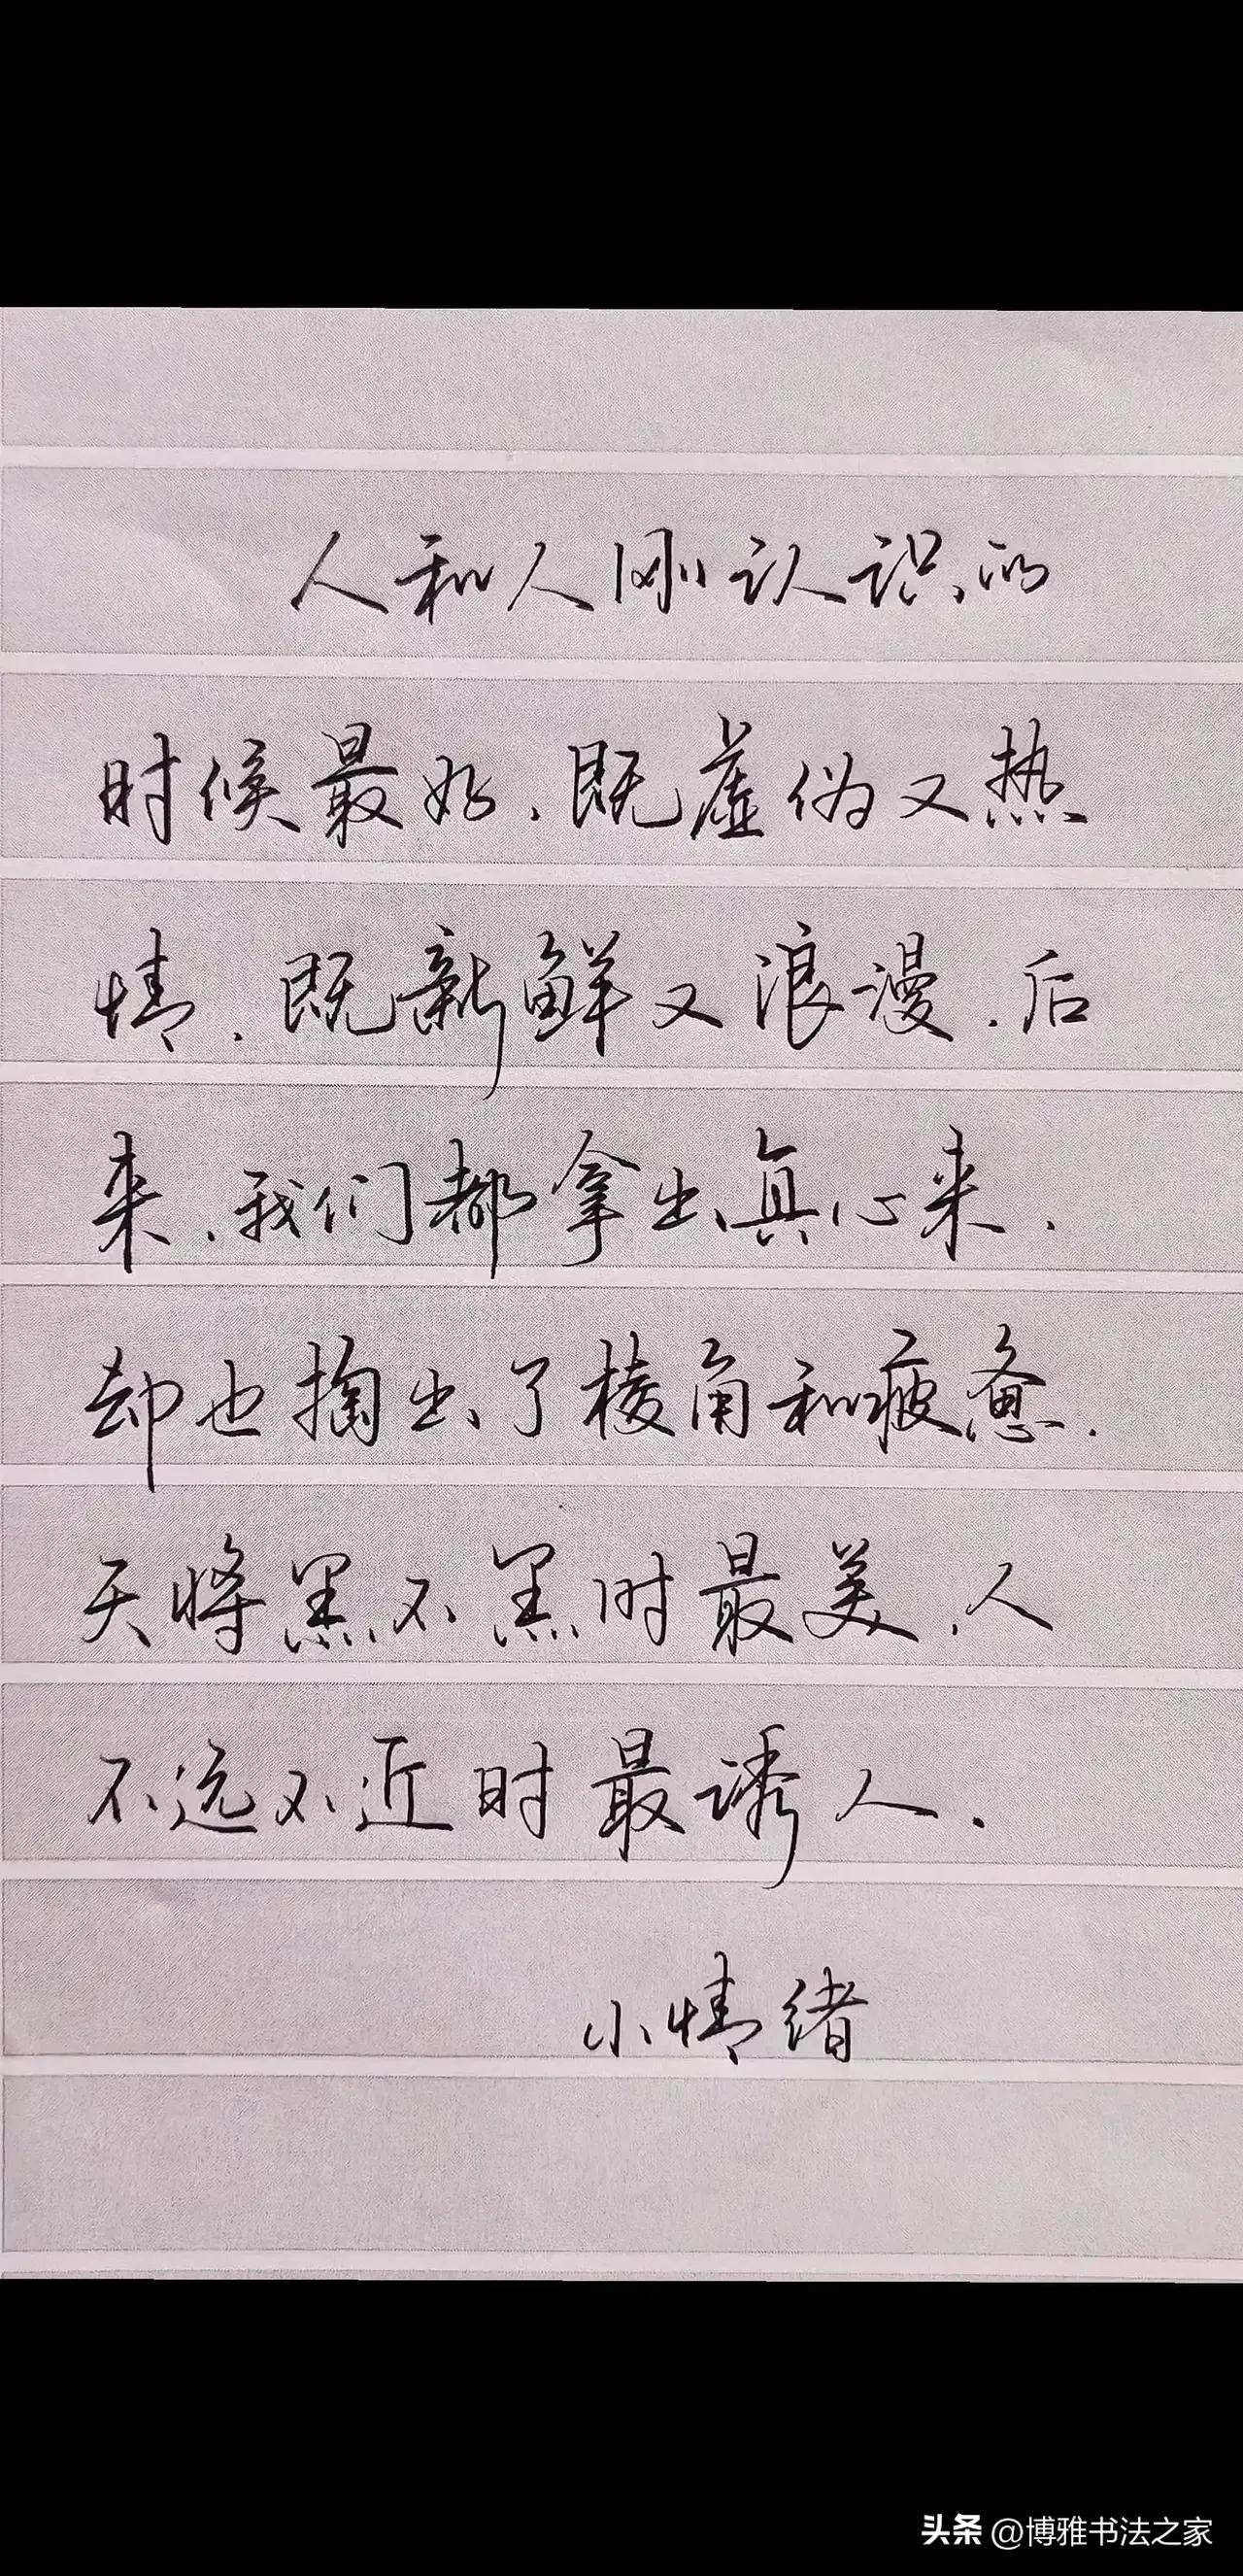 人和人刚认识的
时候最好、既虚伪又热
情、既新鲜又浪漫、后
来、我们都拿出真心来、
却也掏出了棱角和疲惫.
天将黑不黑时最美、人
不远不近时最诱人.
小情绪
头条 @博雅书法之家